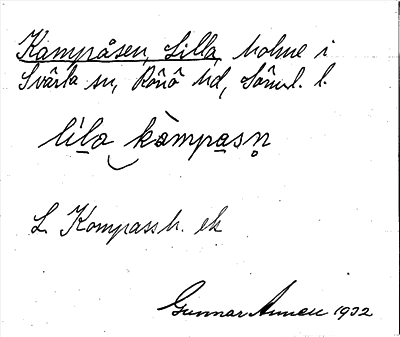 Kampåsen, Lilla, holme i
Svärta sn, Rönö hd, Sörml. l.
lila kàmpasn̥
L. Kompassh. ek
Gunnar 1932